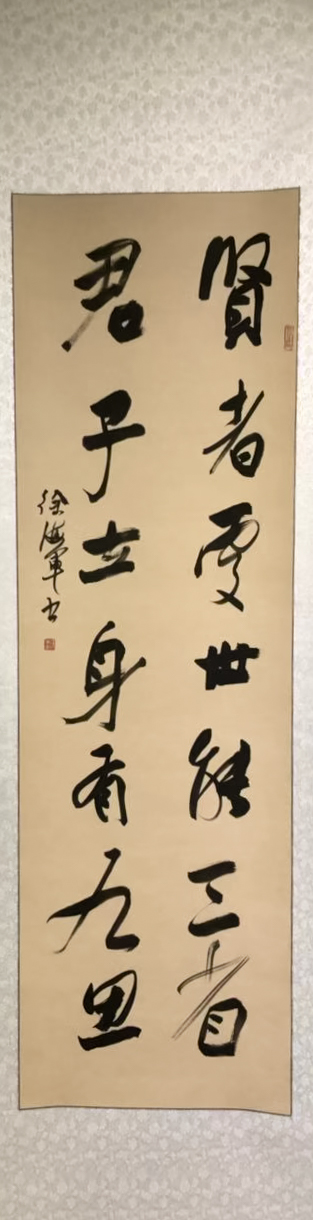 賢者處世能三省
君子立身有九思
徐海軍书